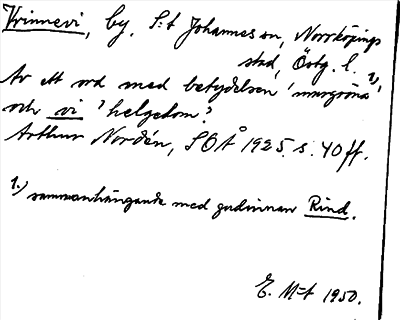 Vrinnevi, by, S:t Johannes sn, Norrköpings
stad, Östg. l.
Av ett ord med betydelsen 'murgröna' 1)
och vi 'helgedom'?
Arthur Nordén, SOÅ 1925. s. 40 ff.
1.) sammanhängande med gudinnan Rind.
E. M-t 1950.